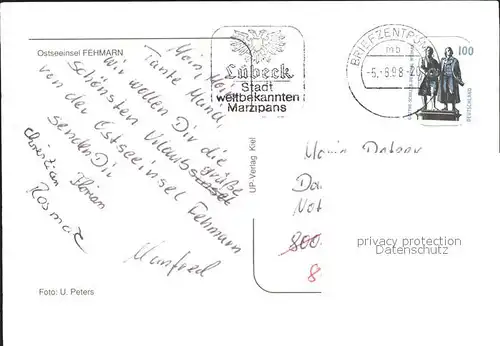 Ostseeinsel FEHMARN
Moin, Moin
Tante Mundi,
Wir wollen Dir die
schönsten Urlaubsgrüße
von der Ostseeinsel Fehmarn
senden Dir
Christian Florian
Rosmar
Manfred
Foto: U. Peters
UP-Verlag Kiel
Lübeck
Stadt
weltbekannten
Marzipans
BRIEFZENTRUM
mb
-5.-8.98-20
100
DEUTSCHLAND
Maria
800
8
privacy protection
Datenschutz